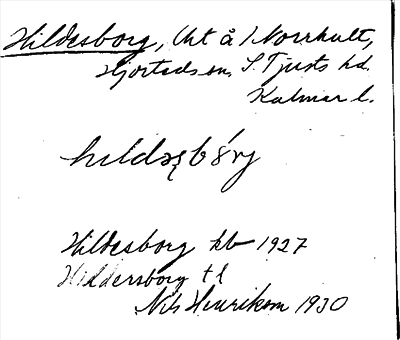 Hildesborg, Aht å 1 Norrhult,
Hjorteds sn, S. Tjusts hd.
Kalmar l.
Hildesborg kb 1927
Hiddersborg tl
Nils Henrikson 1930